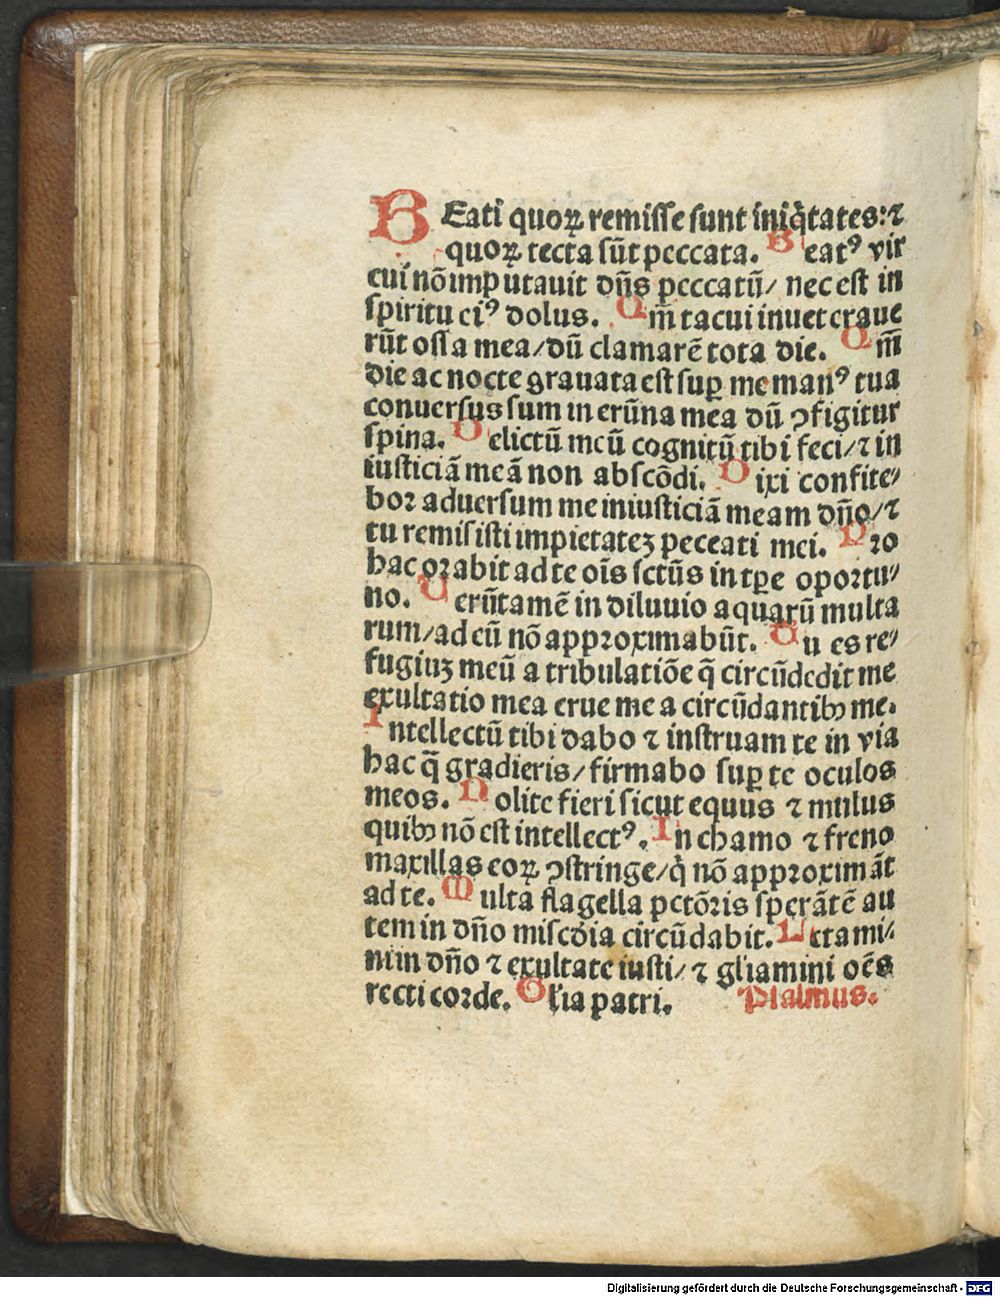 BEati quoꝝ remisse sunt iniq̇tates: ⁊
quoꝝ tecta sūt peccata. Beatꝰ vir
cui nō imputauit dn̄s peccatū / nec est in
spiritu eiꝰ dolus. Qm̄ tacui inueteraue
rūt ossa mea / dū clamarē tota die. Qm̄
die ac nocte grauata est suꝑ me manꝰ tua
conuersus sum in erūna mea dū ꝯfigitur
spina. Delictū meū cognitū tibi feci / ⁊ in
iusticiā meā non abscōdi. Dixi confite⸗
bor aduersum me iniusticiā meam dn̄o / ⁊
tu remisisti impietateꝫ peccati mei. Pro
hac orabit ad te oīs sctūs in tꝑe oportu⸗
no. Uerūtamē in diluuio aquarū multa
rum / ad eū nō approximabūt. Tu es re⸗
fugiuꝫ meū a tribulatiōe q̄ circūdedit me
exultatio mea erue me a circūdantibꝰ me.
Intellectū tibi dabo ⁊ instruam te in via
hac q̄ gradieris / firmabo suꝑ te oculos
meos. Nolite fieri sicut equus ⁊ mulus
quibꝰ nō est intellectꝰ. In chamo ⁊ freno
maxillas eoꝝ ꝯstringe / q̇ nō approximāt
ad te. Multa flagella pctōris sperātē au
tem in dn̄o miscd̄ia circūdabit. Letami⸗
nim dn̄o ⁊ exultate iusti / ⁊ gl̄iamini oēs
recti corde. Gl̄ia patri. Psalmus.
Digitalisierung gefördert durch die Deutsche Forschungsgemeinschaft - DFG